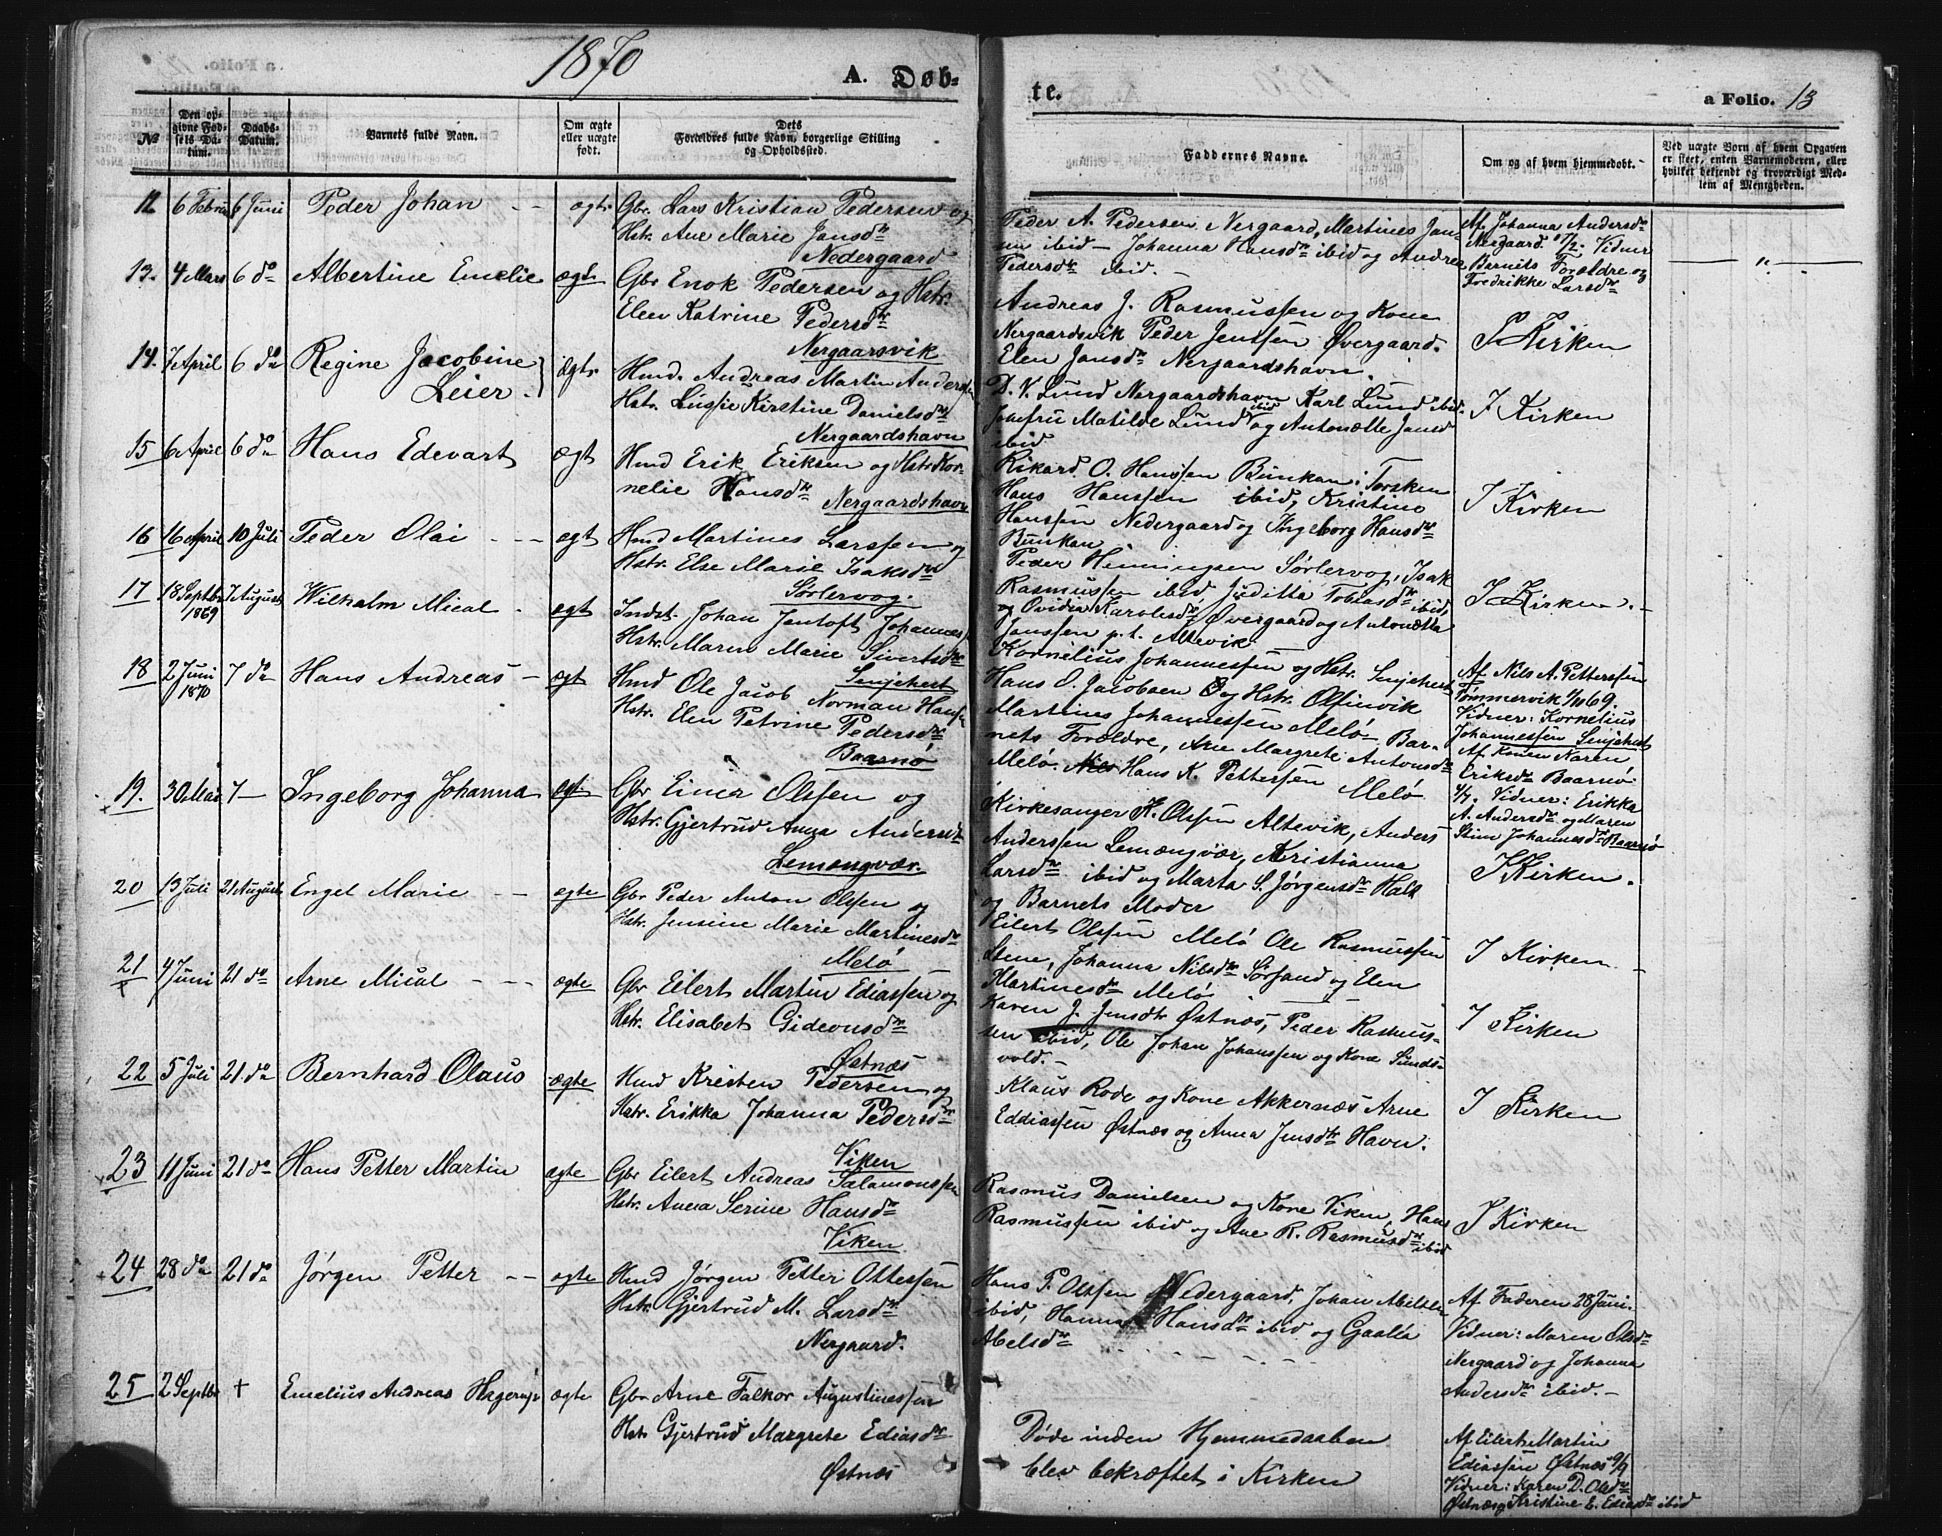 1870
A. Døb-
te.
a Folio. 13
No
Den op-
givne Fød-
sels Da-
tum.
Daabs-
Datum.
Barnets fulde Navn.
Om ægte
eller uægte
født.
Dets
Forældres fulde Navn, borgerlige Stilling
og Opholdssted.
Faddernes Navne.
Om og af hvem hjemmedøbt.
Ved uægte Børn af hvem Opgaven
er skeet, enten Barnemoderen, eller
hvilket bekjendt og troværdigt Med-
lem af Menigheden.
12 6 Februar 6 Juni Peder Johan - - ægte Gbr. Lars Kristian Pedersen og
Hstr. Ane Marie Jansdr
Nedergaard
Peder A. Pedersen Nergaard, Martines Jan-
sen ibid - Johanna Hansdr ibid og Andrea
Pedersdr ibid. -
Af Johanna Andersdr
Nergaard 8/2. Vidner
Barnets Forældre og
Fredrikke Larsdr
13. 4 Mars 6 do Albertine Emelie ægte Gbr Enok Pedersen og Hstr.
Elen Katrine Pedersdr
Nergaarsvik
Andreas J. Rasmussen og Kone
Nergaardsvik Peder Jentsen Øvergaard.
Elen Jansdr Nergaardshavn.
I Kirken
14. 7 April 6 do Regine Jacobine
Leier. ægte Hmd. Andreas Martin Andersen
Hstr. Lussie Kirstine Danielsdr
Nergaardshavn
D. V. Lund Nergaardshavn Karl Lund ibid.
Jomfru Matilde Lund ibid og Antonette Jansd
ibid
I Kirken
15 6 April 6 do Hans Edevart ægt Hmd Erik Eriksen og Hstr. Kor-
nelie Hansdr
Nergaardshavn
Rikard O. Hanssen Bunkan i Torsken
Hans Hanssen ibid, Kristine
Hanssen Nedergaard og Ingeborg Hansdr
Bunkan
I Kirken
16 16 April 10 Juli Peder Olai - - ægt Hmd Martines Larssen og
Hstr. Else Marie Isaksdr
Sørlervog.
Peder Henningsen Sørlervog, Isak
Rasmussen ibid, Juditta Tobiasdr ibid,
og Ovidia Karolesdr Øvergaard og Antonætta
Janssen p.t. Altevik
I Kirken. -
17 18 Septbr
1869 7 August Wilhalm Mical - ægt Indst. Johan Jentoft Johannessen
Hstr. Maren Marie Sivertsdr
Senjehest
Kornelius Johannessen og Hstr. Senjehest
Hans O. Jacobsen Ø og Hstr. Olfinvik
Af Nils A. Pettersen
Tømmervik 1/10 69.
Vidner: Kornelius
Johannessen Senjehest
18 2 Juni
1870 7 do Hans Andreas - ægt Hmd Ole Jacob Norman Hansen
Hstr. Elen Petrine Pedersdr
Baarnø
Martines Johannessen Melø Bar-
nets Forældre, Ane Margrete Antonsdr
Melø. Hans K. Pettersen Melø
Af Konen Karen
Eriksdr Baarnø
4/7. Vidner: Erikka
A. Andersdr og Maren
Stine Johannesdr Baarnø
19. 30 Mai 7 - Ingeborg Johanna ægt Gbr Einer Olssen og
Hstr. Gjertrud Anna Andersdr
Lemongvær.
Kirkesanger K. Olssen Altevik, Anders
Anderssen Lemængvær, Kristianna
Larsdr ibid og Marta S. Jørgensdr Halk
og Barnets Moder
I Kirken.
20 13 Juli 21 August Engel Marie - - ægte Gbr Peder Anton Olssen og
Hstr. Jensine Marie Martinesdr
Melø
Eilert Olssen Melø Ole Rasmussen
Stene, Johanna Nilsdr Sørsand og Elen
Martinesdr Melø
I Kirken -
21 4 Juni 21 do Arne Mical - - - ægte Gbr Eilert Martin Ediassen og
Hstr. Elisabet Gideonsdr
Østnæs
Karen J. Jensdtr Østnæs, Peder Rasmus-
sen ibid, Ole Johan Johanssen og Kone Sunds-
vold. -
I Kirken
22 5 Juli 21. do Bernhard Olaus ægte Hmd Kristen Pedersen og
Hstr. Erikka Johanna Pedersdr
Viken
Klaus Rode og Kone Akkernæs Arne
Eddiassen Østnæs og Anna Jensdtr Havn.
I Kirken
23 11 Juni 21 do Hans Petter Martin ægte Gbr Eilert Andreas Salamonssen
Hstr. Anna Serine Hansdr
Viken
Rasmus Danielsen og Kone Viken, Hans
Rasmussen ibid og Ane R. Rasmusdr ibid
I Kirken
24 28 do 21 do Jørgen Petter - - ægte Hmd Jørgen Petter Ottessen
Hstr. Gjertrud M. Larsdr
Nergaard.
Hans P. Olssen Nedergaard, Johan Abelsen
ibid, Hanna Hansdr ibid og Gaalia
Abelsdr - - - - -
Af Faderen 28 Juni.
Vidner: Maren Olsdr
Nergaard og Johanna
Andersdr ibid. -
25 2 Septbr + Emelius Andreas Hagerup ægte Gbr Arne Falkor Augustinussen
Hstr Gjertrud Margrete Ediasdr
Østnæs
Døde inden Hjemmedaaben
blev bekræftet i Kirken
Af Eilert Martin
Ediassen Østnæs 9/9
Vidner: Karen D. Olsdr
Østnæs og Kristine E. Ediasdr ibid